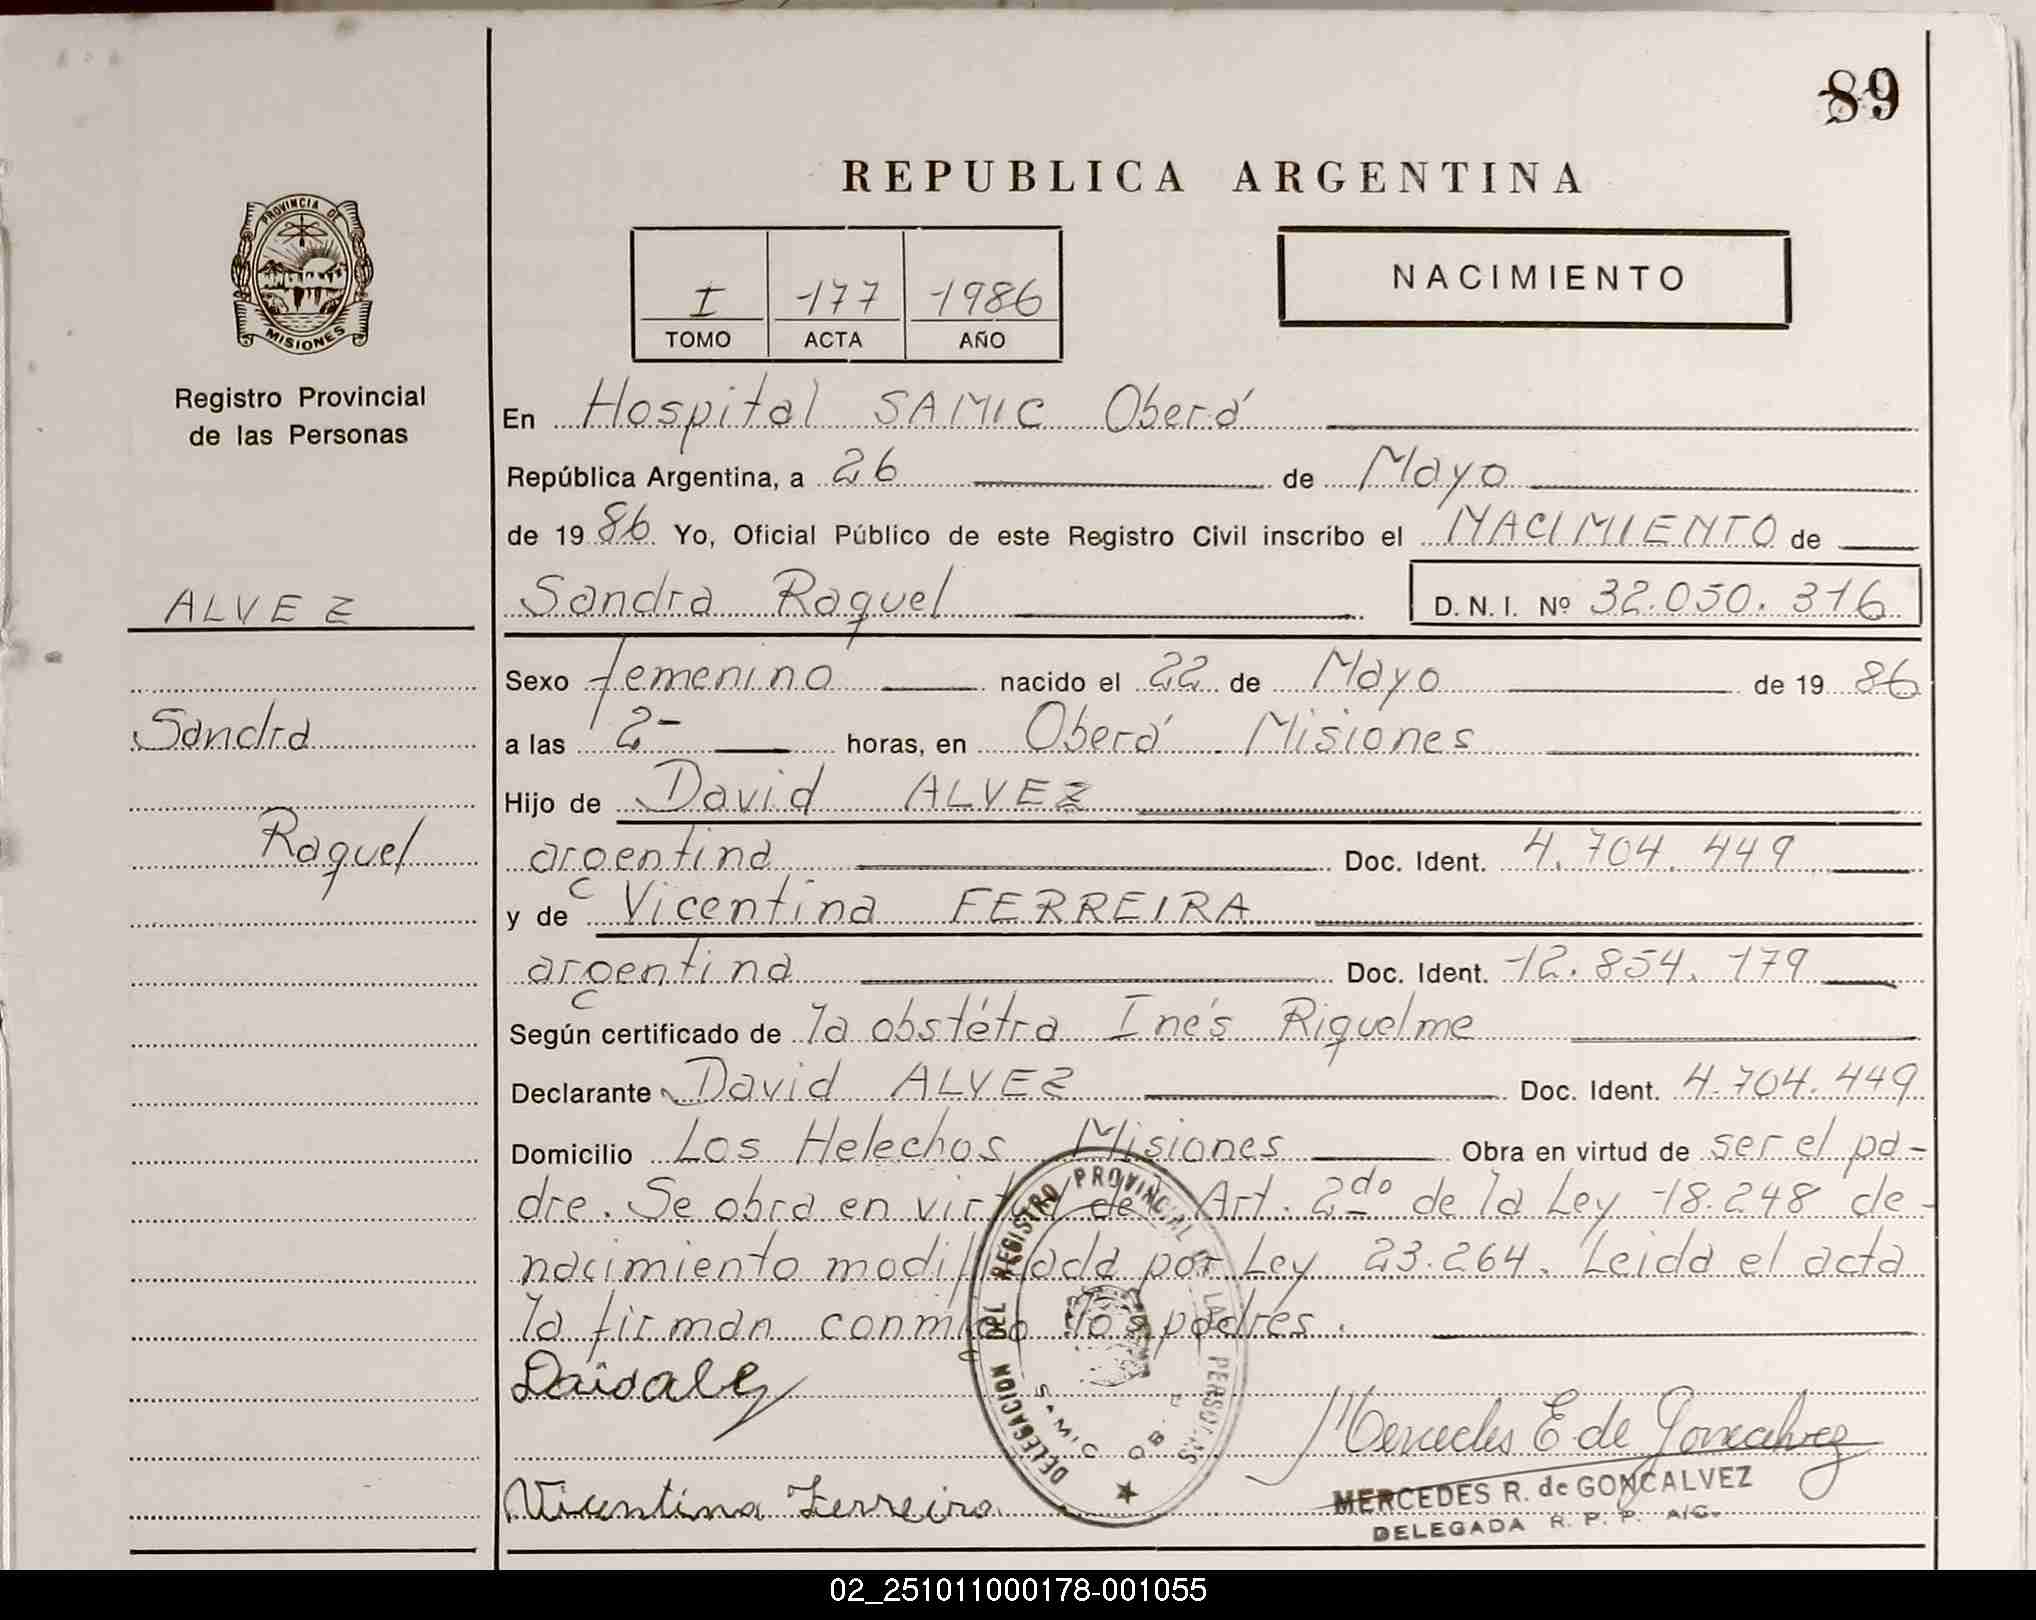 89
REPUBLICA ARGENTINA
PROVINCIA DE
MISIONES
I 177 1986
TOMO ACTA AÑO
NACIMIENTO
Registro Provincial
de las Personas
En Hospital SAMIC Oberá
República Argentina, a 26 de Mayo
de 1986 Yo, Oficial Público de este Registro Civil inscribo el NACIMIENTO de
ALVEZ
Sandra Raquel D.N.I. Nº 32.050.316
Sexo femenino nacido el 22 de Mayo de 1986
Sandra
a las 2- horas, en Oberá Misiones
Hijo de David ALVEZ
Raquel
argentina Doc. Ident. 4.704.449
y de Vicentina FERREIRA
argentina Doc. Ident. 12.854.179
Según certificado de la obstétra Inés Riquelme
Declarante David ALVEZ Doc. Ident. 4.704.449
Domicilio Los Helechos Misiones Obra en virtud de ser el pa-
dre. Se obra en virtud del Art. 2do de la Ley 18.248 de-
nacimiento modificada por Ley 23.264. Leida el acta
la firman conmigo los padres.
DELEGACION DEL REGISTRO PROVINCIAL DE LAS PERSONAS
Mercedes E de Goncalvez
Vicentina Ferreira
MERCEDES R. de GONÇALVEZ
DELEGADA R. P. P. A/C.
02_251011000178-001055